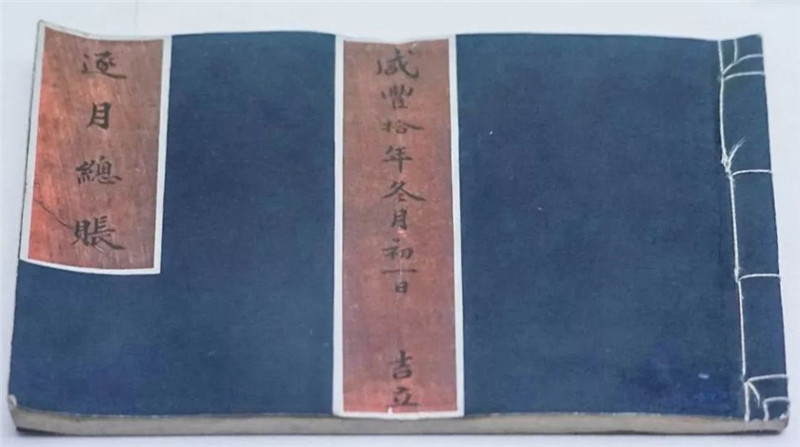 咸豐拾年冬月初一日 吉立
逐月總賬